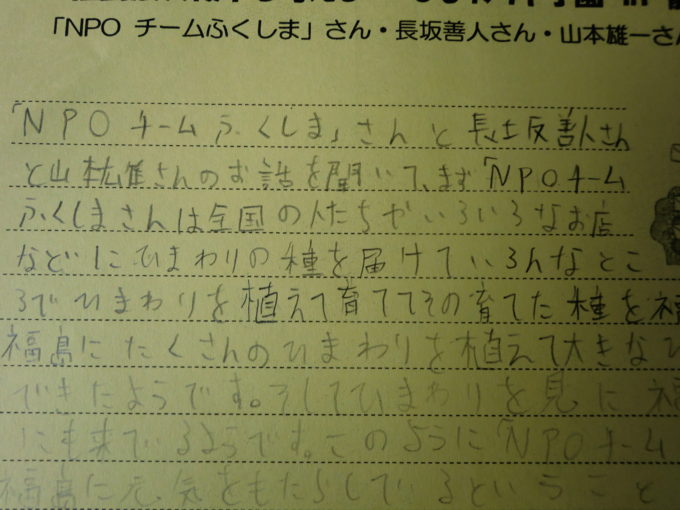 「NPO チームふくしま」さん・長坂善人さん・山本雄一さん
「NPOチームふくしま」さんと長坂善人さん
と山本雄さんのお話を聞いて、まず「NPOチーム
ふくしまさんは全国の人たちやいろいろなお店
などにひまわりの種を届けていろんなとこ
ろでひまわりを植えて育ててその育てた種を福
福島にたくさんのひまわりを植えて大きなひ
できたようです。そしてひまわりを見に福
にも来ているようです。このように「NPOチーム
福島に元気をもたらしているということ